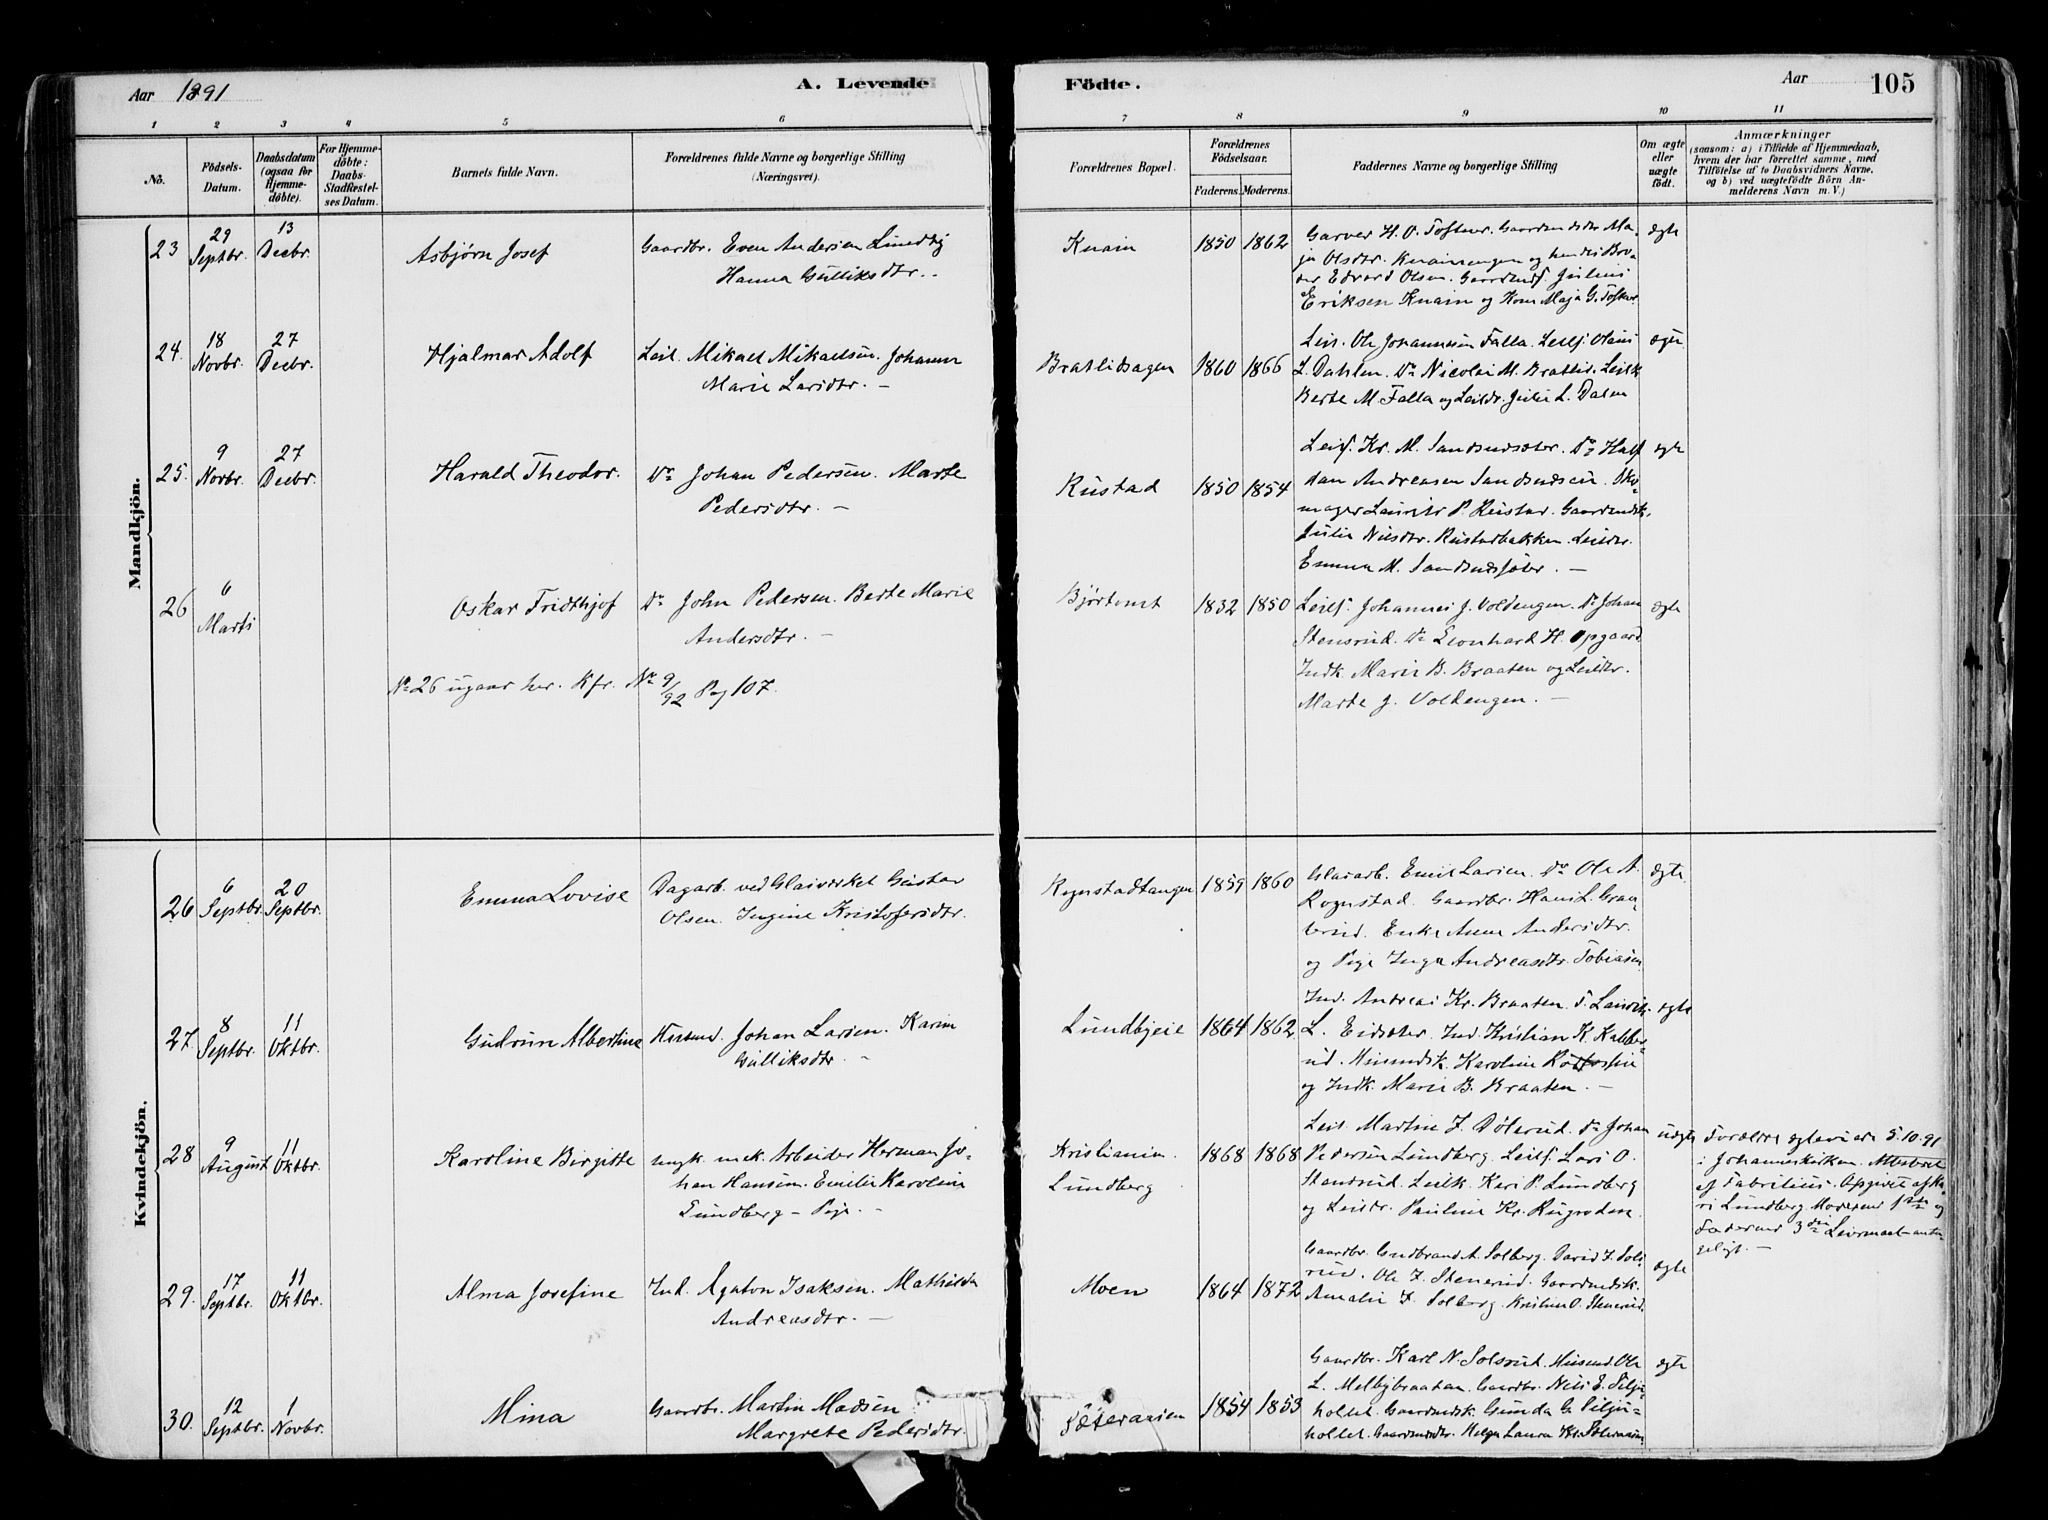 Aar 1891
A. Levende
Födte.
Aar
105
1 2 3 4 5 6 7 8 9 10 11
No.
Födsels-
Datum.
Daabsdatum
(ogsaa for
Hjemme-
døbte).
For Hjemme-
døbte:
Daabs-
Stadfæstel-
ses Datum.
Barnets fulde Navn.
Forældrenes fulde Navne og borgerlige Stilling
(Næringsvei).
Forældrenes Bopæl.
Forældrenes
Födselsaar.
Faderens.
Moderens.
Faddernes Navne og borgerlige Stilling
Om ægte
eller
uægte
født.
Anmærkninger
(saasom: a) i Tilfælde af Hjemmedaab,
hvem der har forrettet samme, med
Tilföielse af to Daabsvidners Navne,
og b) ved uægtefödte Börn An-
melderens Navn m. V.)
Mandkjön.
23
29
Septbr.
13
Decbr.
Asbjørn Josef
Gaardbr. Even Andersen Lundby
Hanna Gulliksdtr.
Knain
1850 1862
Garver H. O. Toftner. Gaardmdsdtr Ma-
ja Olsdtr. Knainengen og hendes Bro-
der Edvard Olsen. Gaardmdsf Julius
Eriksen Knain og Kone Maja G. Toftner
ægte
24.
18
Novbr.
27
Decbr.
Hjalmar Adolf
Leil. Mikael Mikaelsen. Johanne
Marie Larsdtr. –
Bratlidsagen
1860 1866
Leil. Ole Johannesen Falla. Leilf. Olaus
L. Dahlen. Do Nicolai M. Bratlid. Leilk
Berte M. Falla og Leildr. Julie L. Dalen
ægte
25.
9
Novbr.
27
Decbr.
Harald Theodor.
Do Johan Pedersen. Marte
Pedersdtr. –
Rustad
1850 1854
Leilf. Kr. M. Sandsndsæter. Do Half
dan Andreasen Sandsndseie. Sko-
mager Laurits P. Rustad. Gaardmdsk.
Julie Nilsdtr. Rustadbakken. Leildtr.
Emma M. Sandsndsæter. –
ægte
26
6
Marts
Oskar Fridthjof
Do John Pedersen. Berte Marie
Andersdtr. –
Bjørtomt
1832 1850
Leilf. Johannes J. Voldengen. Do Johan
Stensrud. Do Leonhard H. Opgaard
Indk. Marie B. Braaten og Leildtr.
Marte J. Voldengen. –
ægte
No 26 ugaar her. Kfr. No 9/92 Pag 107.
Kvindekjön.
26
6
Septbr.
20
Septbr.
Emma Lovise
Dagarb. ved Glasværket Gustav
Olsen. Ingine Kristofersdtr.
Rognstadtangen
1859 1860
Glasarb. Emil Larsen. Do Ole A.
Rognstad. Gaardbr. Hans L. Graa-
berud. Enke Anne Andersdtr.
og Pige Inga Andreasdtr. Tobiasen
ægte
27.
8
Septbr.
11
Oktbr.
Gudrun Albertine
Husmd. Johan Larsen. Karen
Gulliksdtr. –
Lundbyeie
1864 1862
Ind. Andreas Kr. Braaten. F. Laurits
L. Eidsæter. Ind. Kristian K. Kalbber-
ud. Husmdsk. Karoline
og Indk. Marie B. Braaten. –
ægte
28
9
August
11
Oktbr.
Karoline Birgitte
ungk. mek. Arbeider Herman Jo-
han Hansen. Emilie Karoline
Lundberg – Pige. –
Kristiania.
Lundberg
1868 1868
Leil. Martin L. Dølerud. Do Johan
Pedersen Lundberg. Leilf. Lars O.
Standsrud. Leilk. Kari P. Lundberg
og Leildtr. Pauline Kr. Rugroden.
uægte
Forældre egteviede 5.10.91
i Johanneskirken. Attesteret
af Fabritius. Opgivet af Ka-
ri Lundberg Moderens 1ste og
Faderens 3die Leiermaal – anta-
geligt. –
29.
17
Septbr.
11
Oktbr.
Alma Josefine
Ind. Agaton Isaksen. Mathilda
Andreasdtr. –
Moen
1864 1872
Gaardbr. Gudbrand A. Solberg. David I. Sols-
rud. Ole I. Stenerud. Gaardmdsk.
Amalie I. Solberg. Kristine O. Stenerud.
ægte
30.
12
Septbr.
1
Novbr.
Mina
Gaardbr. Martin Madsen
Margrete Pedersdtr.
Sæteraasen
1854 1853
Gaardbr. Karl N. Solsrud. Husmd. Ole
L. Melbybraatan. Gaardbr. Nils E. Pilju-
holdet. Gaardmdsk. Gunda G. Pilju-
holdet. Gaardmdsdtr. Helga Laura Kr. Sæteraasen
ægte